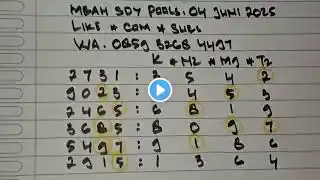 MBAH SDY POOLS. 04 JUNI 2025
LIKE * COM * SUBS
W/A. 0859 3268 4497
K * M2 * M9 * T2
2731:2 5 4 2
9023: 4 5 3
2465:6 8 1 9
3685:8 0 9 7
5497:9 1 8 6
2915:1 3 6 4